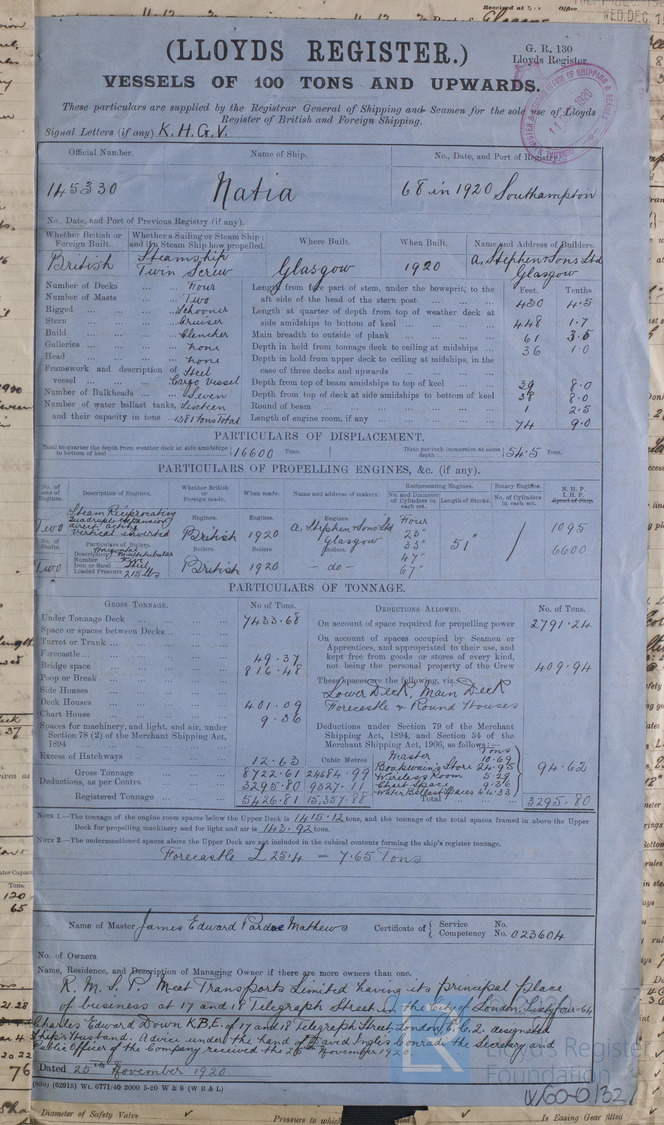 (LLOYDS REGISTER.)
G. R. 130
Lloyds Register
VESSELS OF 100 TONS AND UPWARDS.
These particulars are supplied by the Registrar General of Shipping and Seamen for the sole use of Lloyds
Register of British and Foreign Shipping.
Signal Letters (if any) K.H.G.V.
Official Number. Name of Ship. No., Date, and Port of Registry.
145330 Natia 68 in 1920 Southampton
No., Date, and Port of Previous Registry (if any).
Whether British or Foreign Built. Whether a Sailing or Steam Ship; and in Steam Ship how propelled. Where Built. When Built. Name and Address of Builders.
British Steamship Twin Screw Glasgow 1920 A. Stephen & Sons Ltd Glasgow
Number of Decks Four
Number of Masts Two
Rigged Schooner
Stern Cruiser
Build Clencher
Galleries None
Head None
Framework and description of vessel Steel Cargo Vessel
Number of Bulkheads Seven
Number of water ballast tanks, and their capacity in tons Sixteen 4381 tons Total
Feet. Tenths
Length from fore part of stem, under the bowsprit, to the aft side of the head of the stern post 450 4.5
Length at quarter of depth from top of weather deck at side amidships to bottom of keel 448 1.7
Main breadth to outside of plank 61 3.5
Depth in hold from tonnage deck to ceiling at midships 36 1.0
Depth in hold from upper deck to ceiling at midships, in the case of three decks and upwards
Depth from top of beam amidships to top of keel 39 8.0
Depth from top of deck at side amidships to bottom of keel 38 8.0
Round of beam 1 2.5
Length of engine room, if any 74 9.0
PARTICULARS OF DISPLACEMENT.
Total to quarter the depth from weather deck at side amidships to bottom of keel 16600 Tons. Ditto per inch immersion at same depth 54.5 Tons.
PARTICULARS OF PROPELLING ENGINES, &c. (if any).
No. of sets of Engines. Description of Engines. Whether British or Foreign made. When made. Name and address of makers. Reciprocating Engines. No. and Diameter of Cylinders in each set. Length of Stroke. Rotary Engines. No. of Cylinders in each set. N.H.P. I.H.P. Speed of Ship.
Two Steam Reciprocating quadruple expansion direct acting vertical inverted
Engines. British Engines. 1920 Engines. A. Stephen & Sons Ltd Glasgow
Four 23" 33" 47" 67" 51" 1095 6600
No. of Shafts. Two Particulars of Boilers. Description Multitubular
Number
Iron or Steel Steel
Loaded Pressure 215 lbs
Boilers. British Boilers 1920 Boilers. - do -
PARTICULARS OF TONNAGE.
GROSS TONNAGE. No of Tons. DEDUCTIONS ALLOWED. No. of Tons.
Under Tonnage Deck 7433.68
Space or spaces between Decks
Turret or Trunk
Forecastle 49.37
Bridge space 816.48
Poop or Break
Side Houses
Deck Houses 401.09
Chart House 9.36
Spaces for machinery, and light, and air, under Section 78 (2) of the Merchant Shipping Act, 1894
Excess of Hatchways 12.63
Cubic Metres
Gross Tonnage 8722.61 24684.99
Deductions, as per Contra 3295.80 9327.11
Registered Tonnage 5426.81 15,357.88
On account of space required for propelling power 2791.24
On account of spaces occupied by Seamen or Apprentices, and appropriated to their use, and kept free from goods or stores of every kind, not being the personal property of the Crew 409.94
These spaces are the following, viz.:
Lower Deck, Main Deck
Forecastle & Round Houses
Deductions under Section 79 of the Merchant Shipping Act, 1894, and Section 54 of the Merchant Shipping Act, 1906, as follows:—
Tons
Master 10.69
Boatswain's Store 24.95
Wireless Room 5.29
Chart Space 9.36
Water Ballast Spaces 44.33
94.62
Total 3295.80
NOTE 1.—The tonnage of the engine room spaces below the Upper Deck is 1415.12 tons, and the tonnage of the total spaces framed in above the Upper
Deck for propelling machinery and for light and air is 143.92 tons.
NOTE 2.—The undermentioned spaces above the Upper Deck are not included in the cubical contents forming the ship's register tonnage.
Forecastle L 25.4 = 7.65 Tons
Name of Master James Edward Pardoe Mathews Certificate of { Service No. Competency No. 023604
No. of Owners
Name, Residence, and Description of Managing Owner if there are more owners than one.
R. M. S. P. Meat Transports Limited having its principal place
of business at 17 and 18 Telegraph Street in the City of London, Sixty four-64
Charles Edward Down K.B.E. of 17 and 18 Telegraph Street, London, E.C.2. designated
Ship's Husband. Advice under the hand of David Ingles Conradi the Secretary and
Public Officer of the Company received the 25th November 1920.
Dated 25th November 1920.
(855) (62915) Wt. 6771/40 2000 5-20 W & S (W B L)
Lloyd's Register
Foundation
W60-0132
Diameter of Safety Valve Pressure to which Is Easing Gear fitted